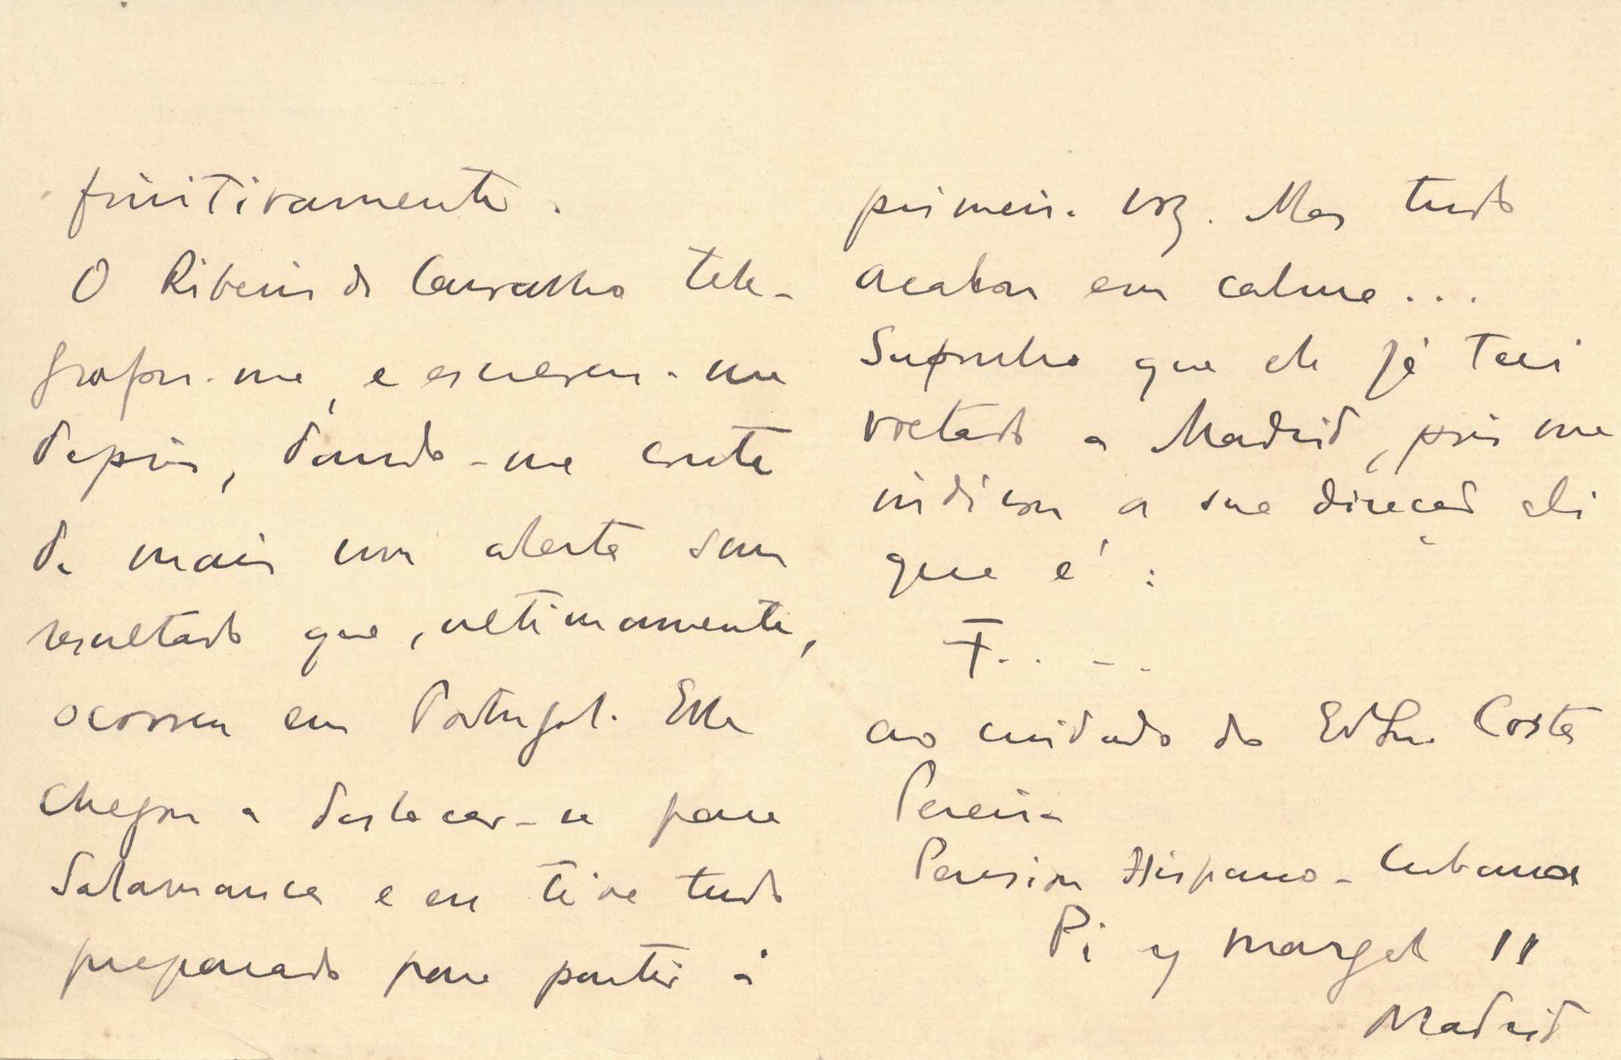 finitivamente.
O Ribeiro de Carvalho tele-
grafou-me, e escreveu-me
depois, dando-me conta
de mais um alerta sem
resultado que, ultimamente,
ocorreu em Portugal. Elle
chegou a deslocar-se para
Salamanca e eu tive tudo
preparado para partir á
primeira voz. Mas tudo
acabou em calma...
Suponho que ele já terá
voltado a Madrid, pois me
indicou a sua direcção ali
que é:
F.. - -
ao cuidado de Costa
Pereira
Pension Hispano-Cubana
Pi y Margal 11
Madrid